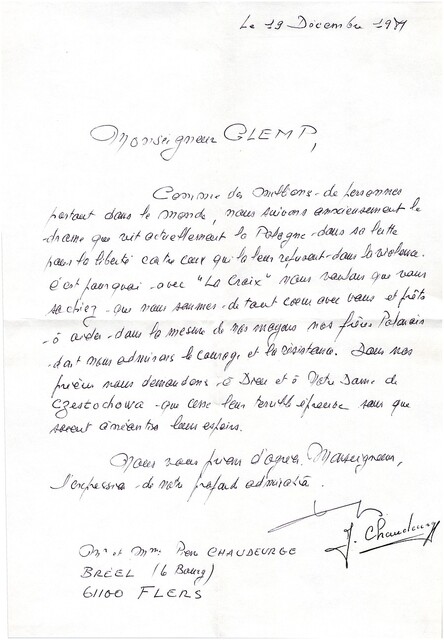 Le 19 Décembre 1981
Monseigneur GLEMP,
Comme des millions de personnes
partout dans le monde, nous suivons anxieusement le
drame que vit actuellement la Pologne dans sa lutte
pour la liberté contre ceux qui la leur refusent dans la violence.
C'est pourquoi avec "La Croix" nous voulons que vous
sachiez que nous sommes de tout coeur avec vous et prêts
à aider dans la mesure de nos moyens nos frères Polonais
dont nous admirons le courage et la résistance. Dans nos
prières nous demandons à Dieu et à Notre Dame de
Czestochowa que cesse leur terrible épreuve sans que
soient anéantis leurs espoirs.
Nous vous prions d'agréer, Monseigneur,
l'expression de notre profonde admiration.
J. Chaudeurge
Mr et Mme CHAUDEURGE
BRÉEL (le Bourg)
61100 FLERS